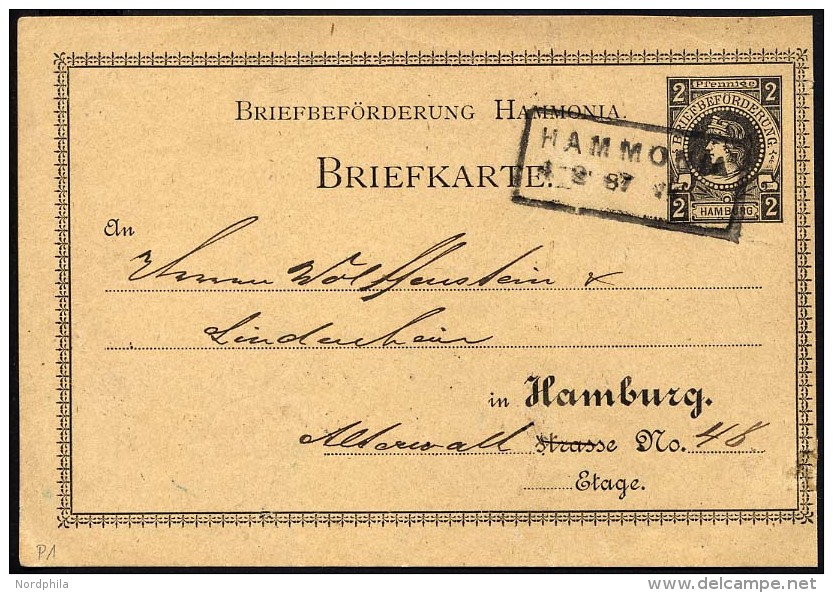 2 Pfennige 2
BRIEFBEFÖRDERUNG
2 HAMBURG 2
BRIEFBEFÖRDERUNG HAMMONIA.
HAMMONIA
87
BRIEFKARTE.
An
Herren Wolffenstein &
Lindenheim
in Hamburg.
Alterwall strasse No. 48
Etage.
P1
Nordphila
delcampe.net